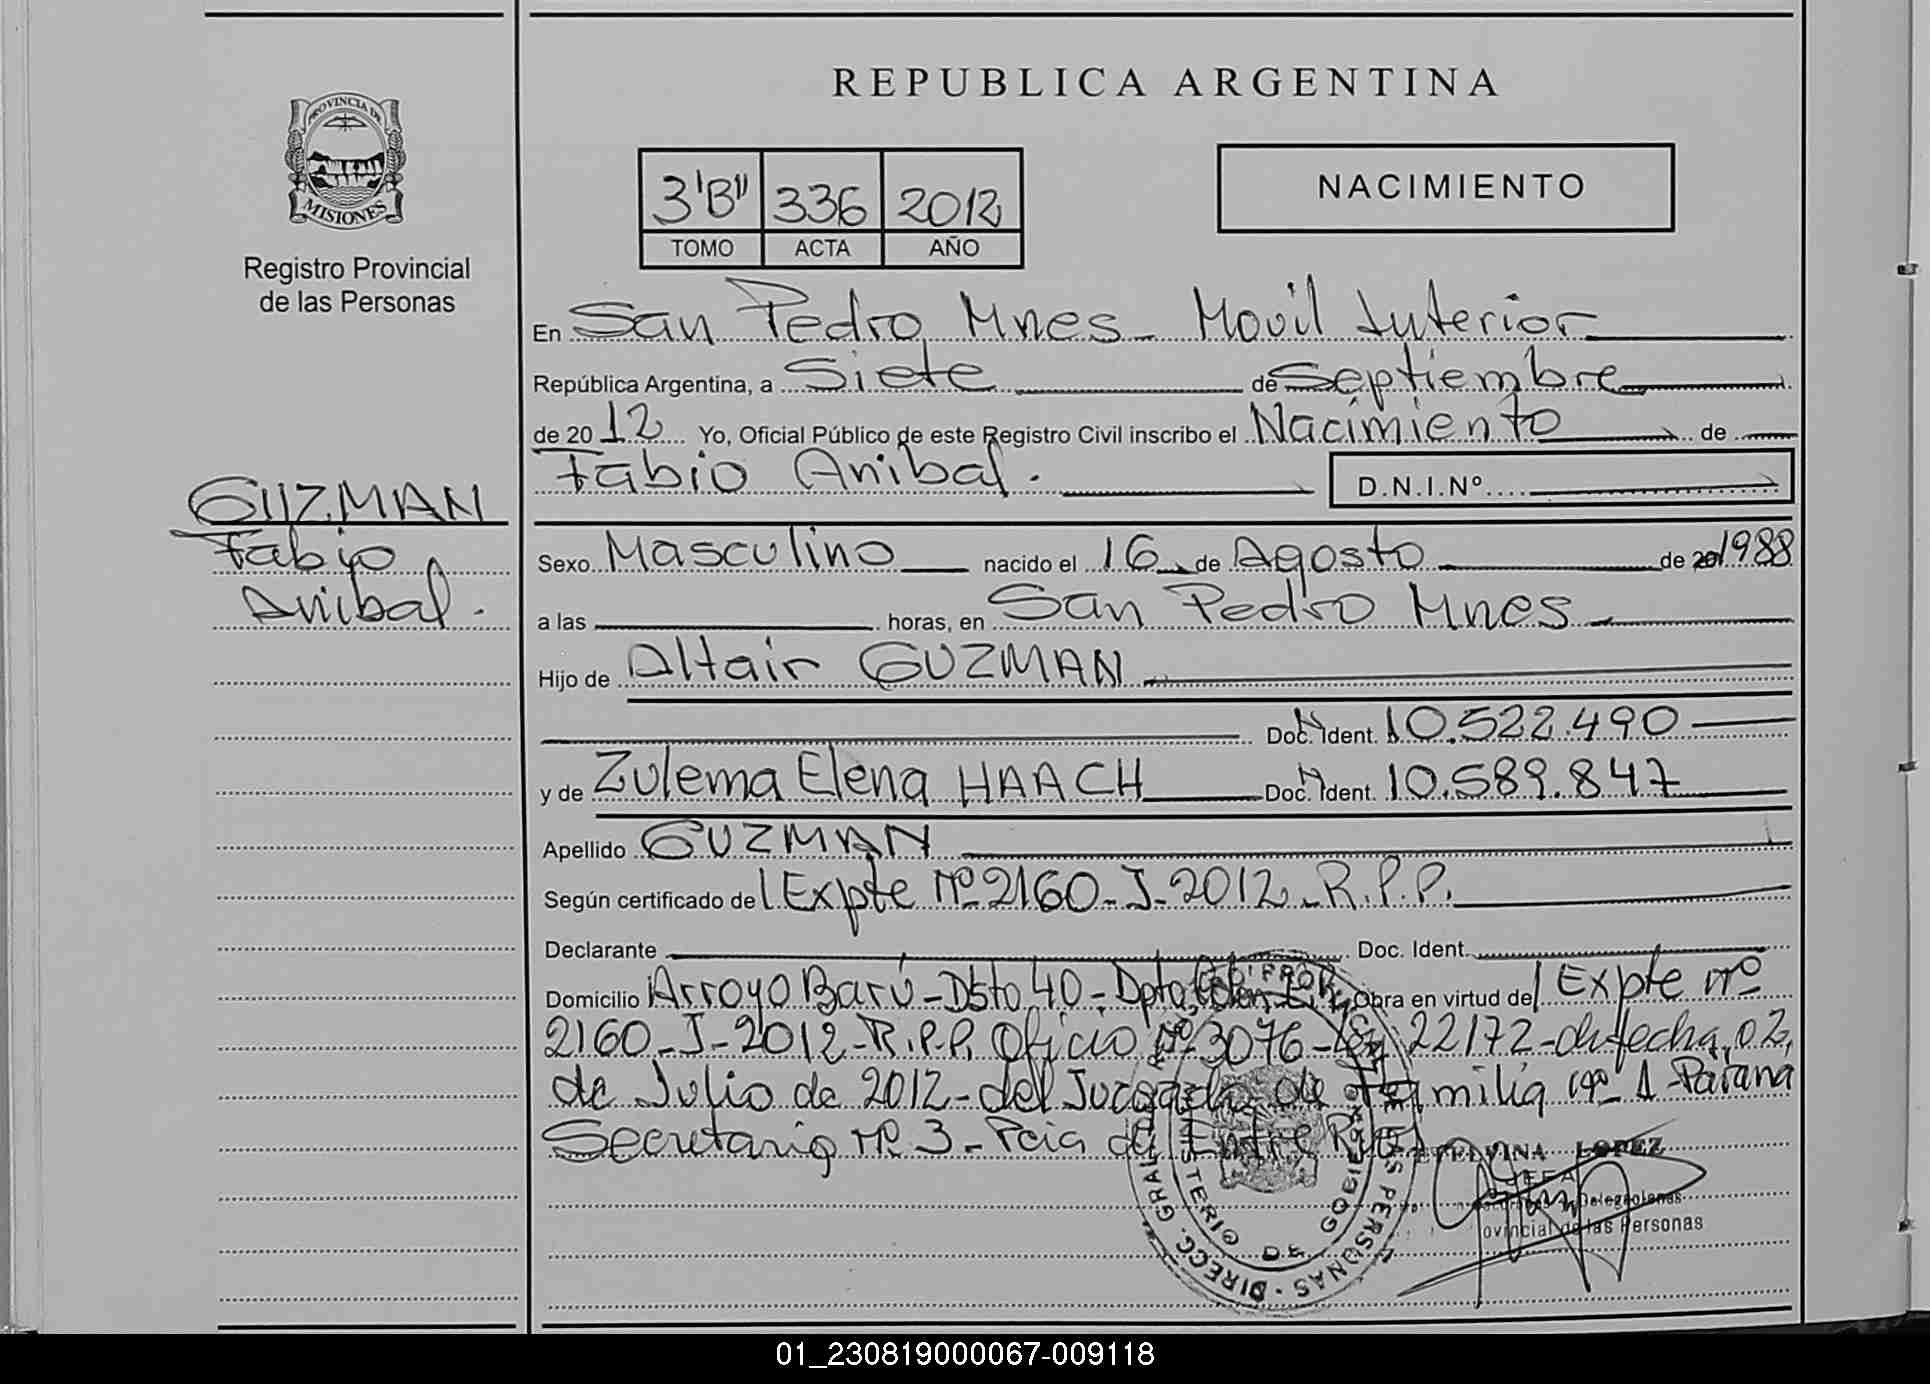 REPUBLICA ARGENTINA
PROVINCIA DE
MISIONES
Registro Provincial
de las Personas
3'B" 336 2012
TOMO ACTA AÑO
NACIMIENTO
En San Pedro Mnes - Movil Interior
República Argentina, a Siete de Septiembre
de 2012 Yo, Oficial Público de este Registro Civil inscribo el Nacimiento de
Fabio Anibal. D.N.I.Nº
GUZMAN
Fabio
Anibal.
Sexo Masculino nacido el 16 de Agosto de 20 1988
a las horas, en San Pedro Mnes
Hijo de Altair GUZMAN
Doc. Ident. 10.522.490
y de Zulema Elena HAACH Doc. Ident. 10.589.847
Apellido GUZMAN
Según certificado de Expte Nº 2160-J-2012-R.P.P.
Declarante Doc. Ident.
Domicilio Arroyo Barú - Dsto 40 - Dpto Colón Obra en virtud de Expte nº
2160-J-2012-R.P.P. Oficio Nº 3076 - Ley 22172 - de fecha 02
de Julio de 2012 - del Juzgado de Familia Nº 1 - Paraná
Secretaria Nº 3 - Pcia de Entre Rios
ETELVINA LOPEZ
JEFA
ovincial de las Personas
DIRECC. GRAL. DE LAS PERSONAS
MINISTERIO DE GOBIERNO
01_230819000067-009118